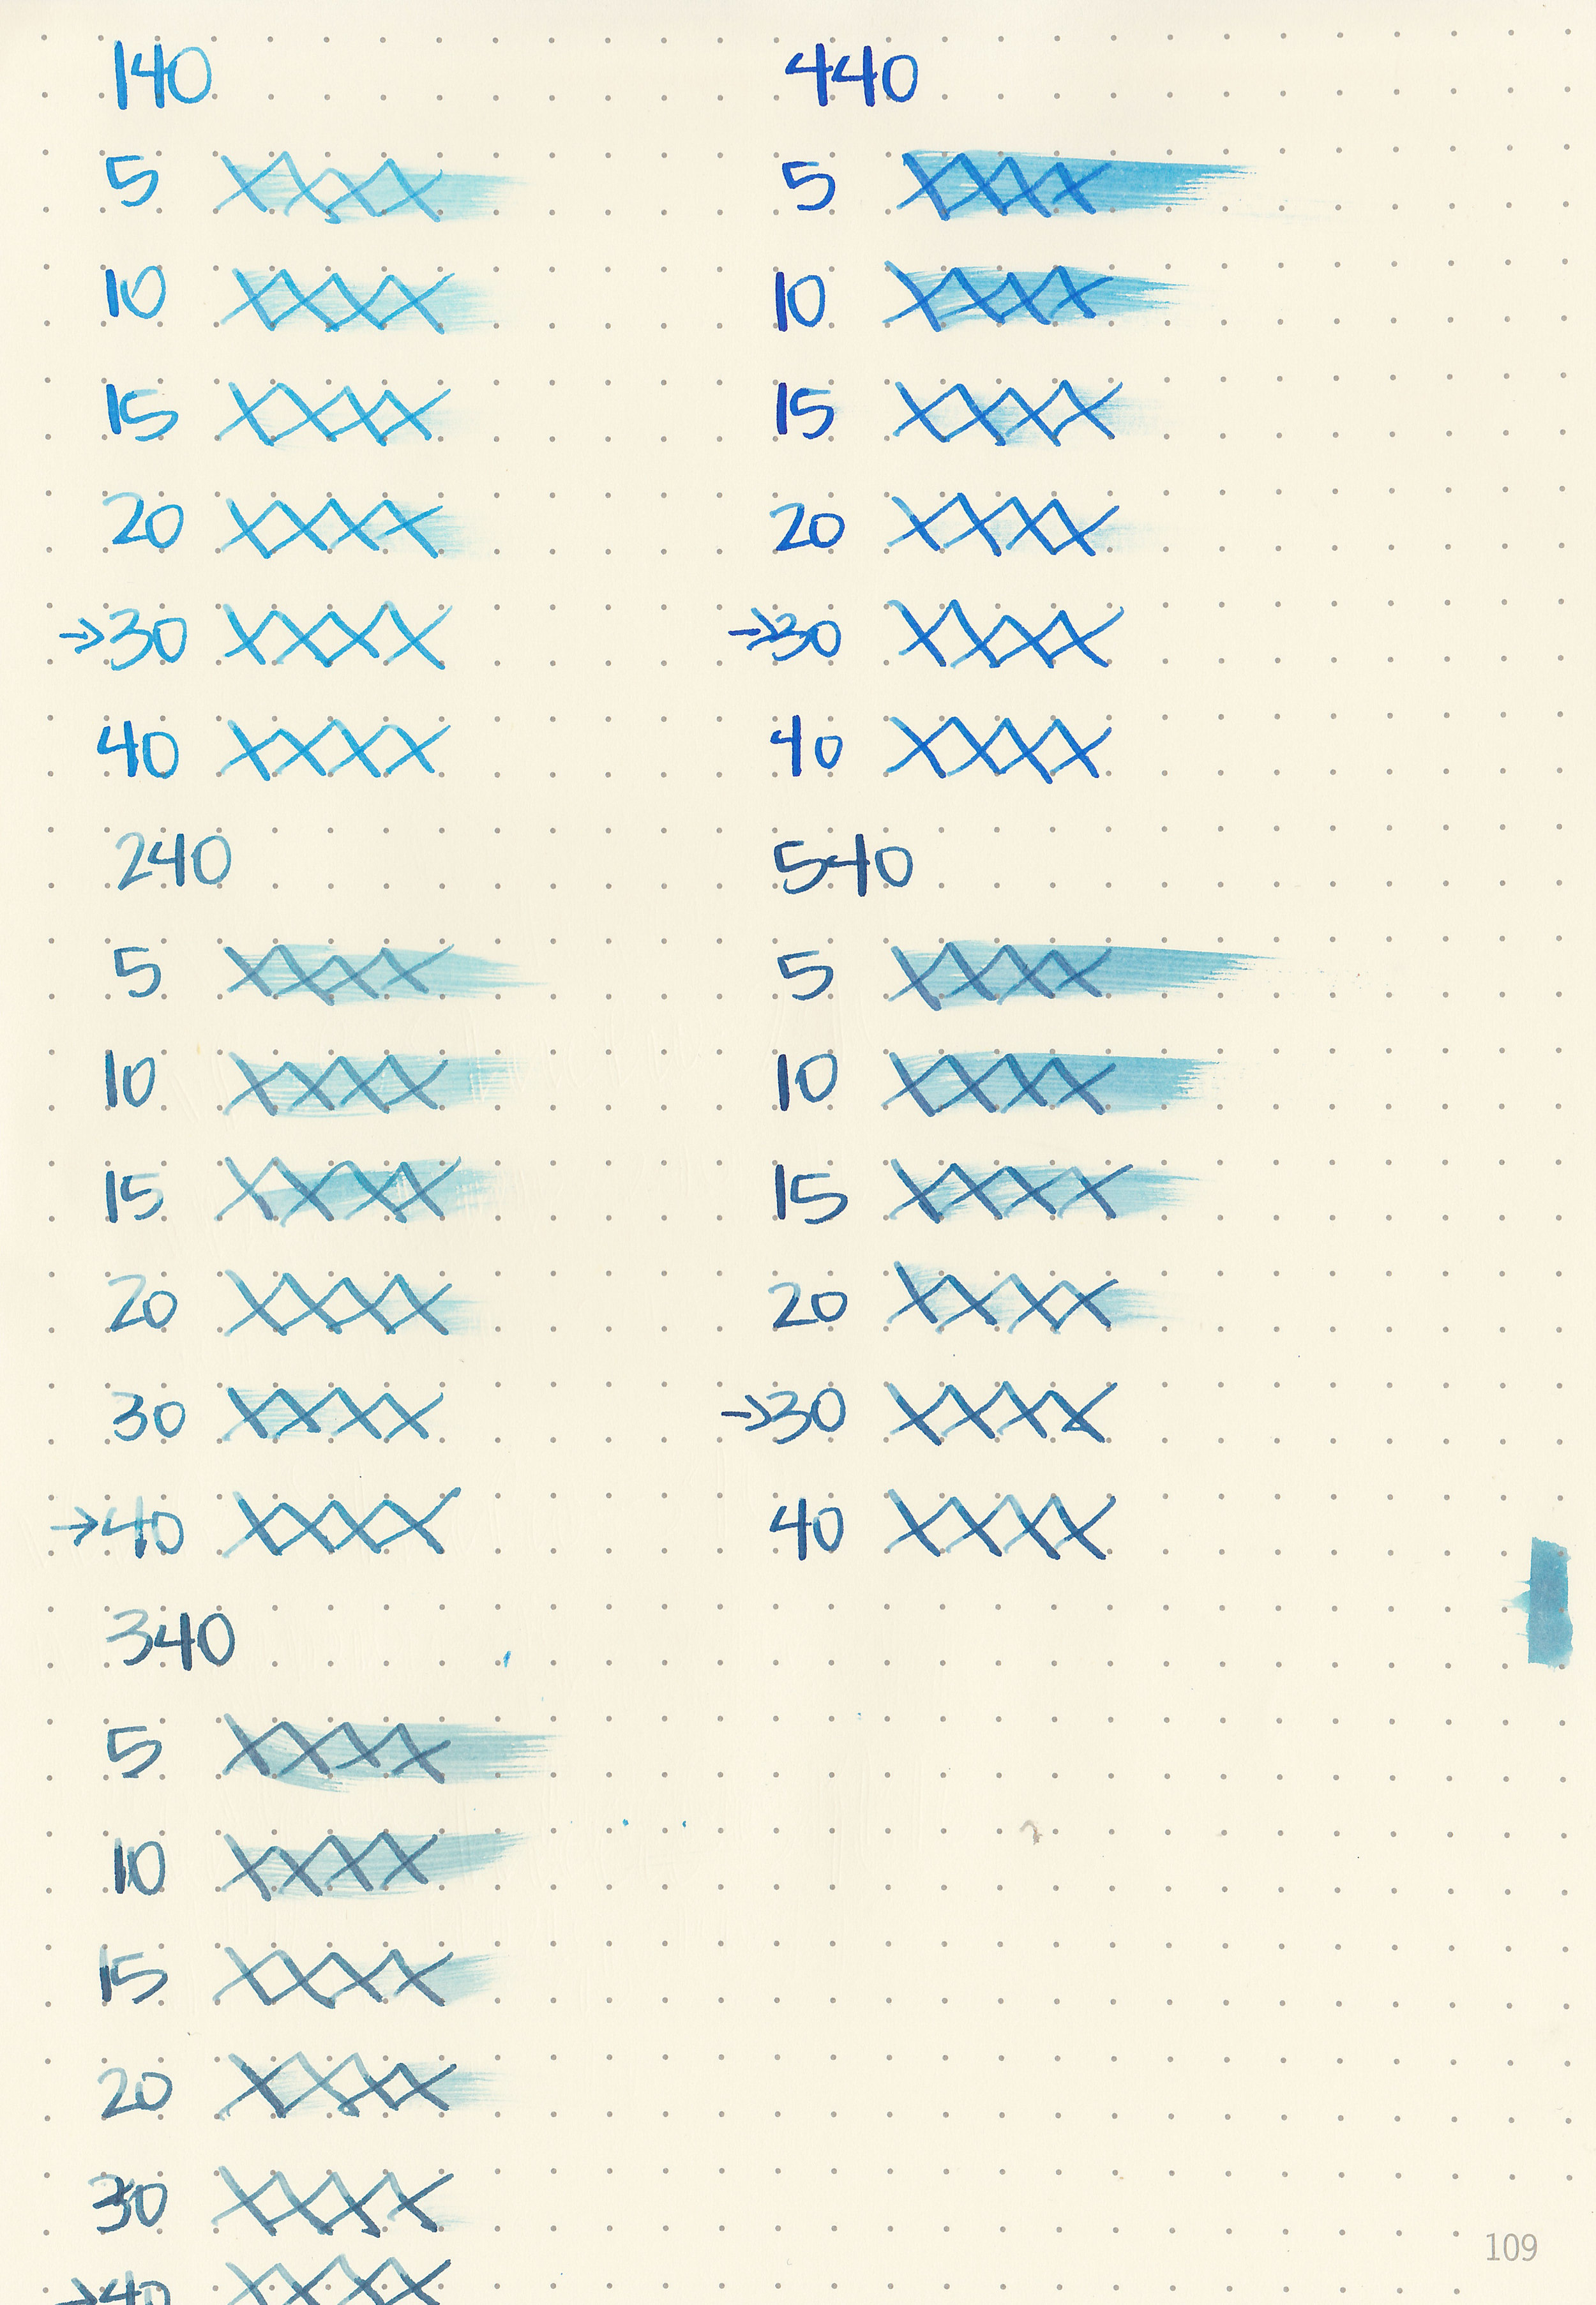 140
5 XXXX
10 XXXX
15 XXXX
20 XXXX
→30 XXXX
40 XXXX
240
5 XXXX
10 XXXX
15 XXXX
20 XXXX
30 XXXX
→40 XXXX
340
5 XXXX
10 XXXX
15 XXXX
20 XXXX
30 XXXX
→40 XXXX
440
5 XXXX
10 XXXX
15 XXXX
20 XXXX
→30 XXXX
40 XXXX
540
5 XXXX
10 XXXX
15 XXXX
20 XXXX
→30 XXXX
40 XXXX
109